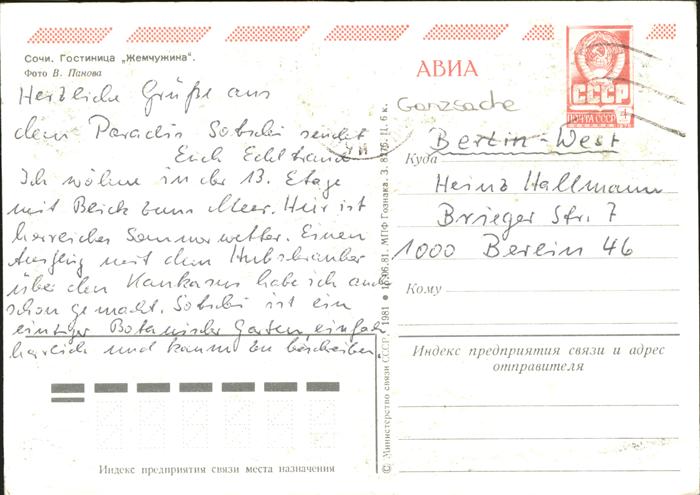 Сочи. Гостиница „Жемчужина“.
Фото В. Панова
Herzliche Grüße aus
dem Paradis Sotschi sendet
Erich
Ich wohne in der 13. Etage
mit Blick zum Meer. Hier ist
herrliches Sommerwetter. Einen
Ausflug mit dem Hubschrauber
über den Kaukasus habe ich auch
schon gemacht. Sotschi ist ein
einziger Botanischer Garten einfach
herlich und kaum zu beschreiben.
Индекс предприятия связи места назначения
© Министерство связи СССР, 1981 • 15.06.81. МПФ Гознака. З. Ц. 6 к.
АВИА
Ganzsache
СССР
ПОЧТА СССР
4
Berlin-West
Куда
Heinz Hallmann
Brieger Str. 7
1000 Berlin 46
Кому
Индекс предприятия связи и адрес
отправителя